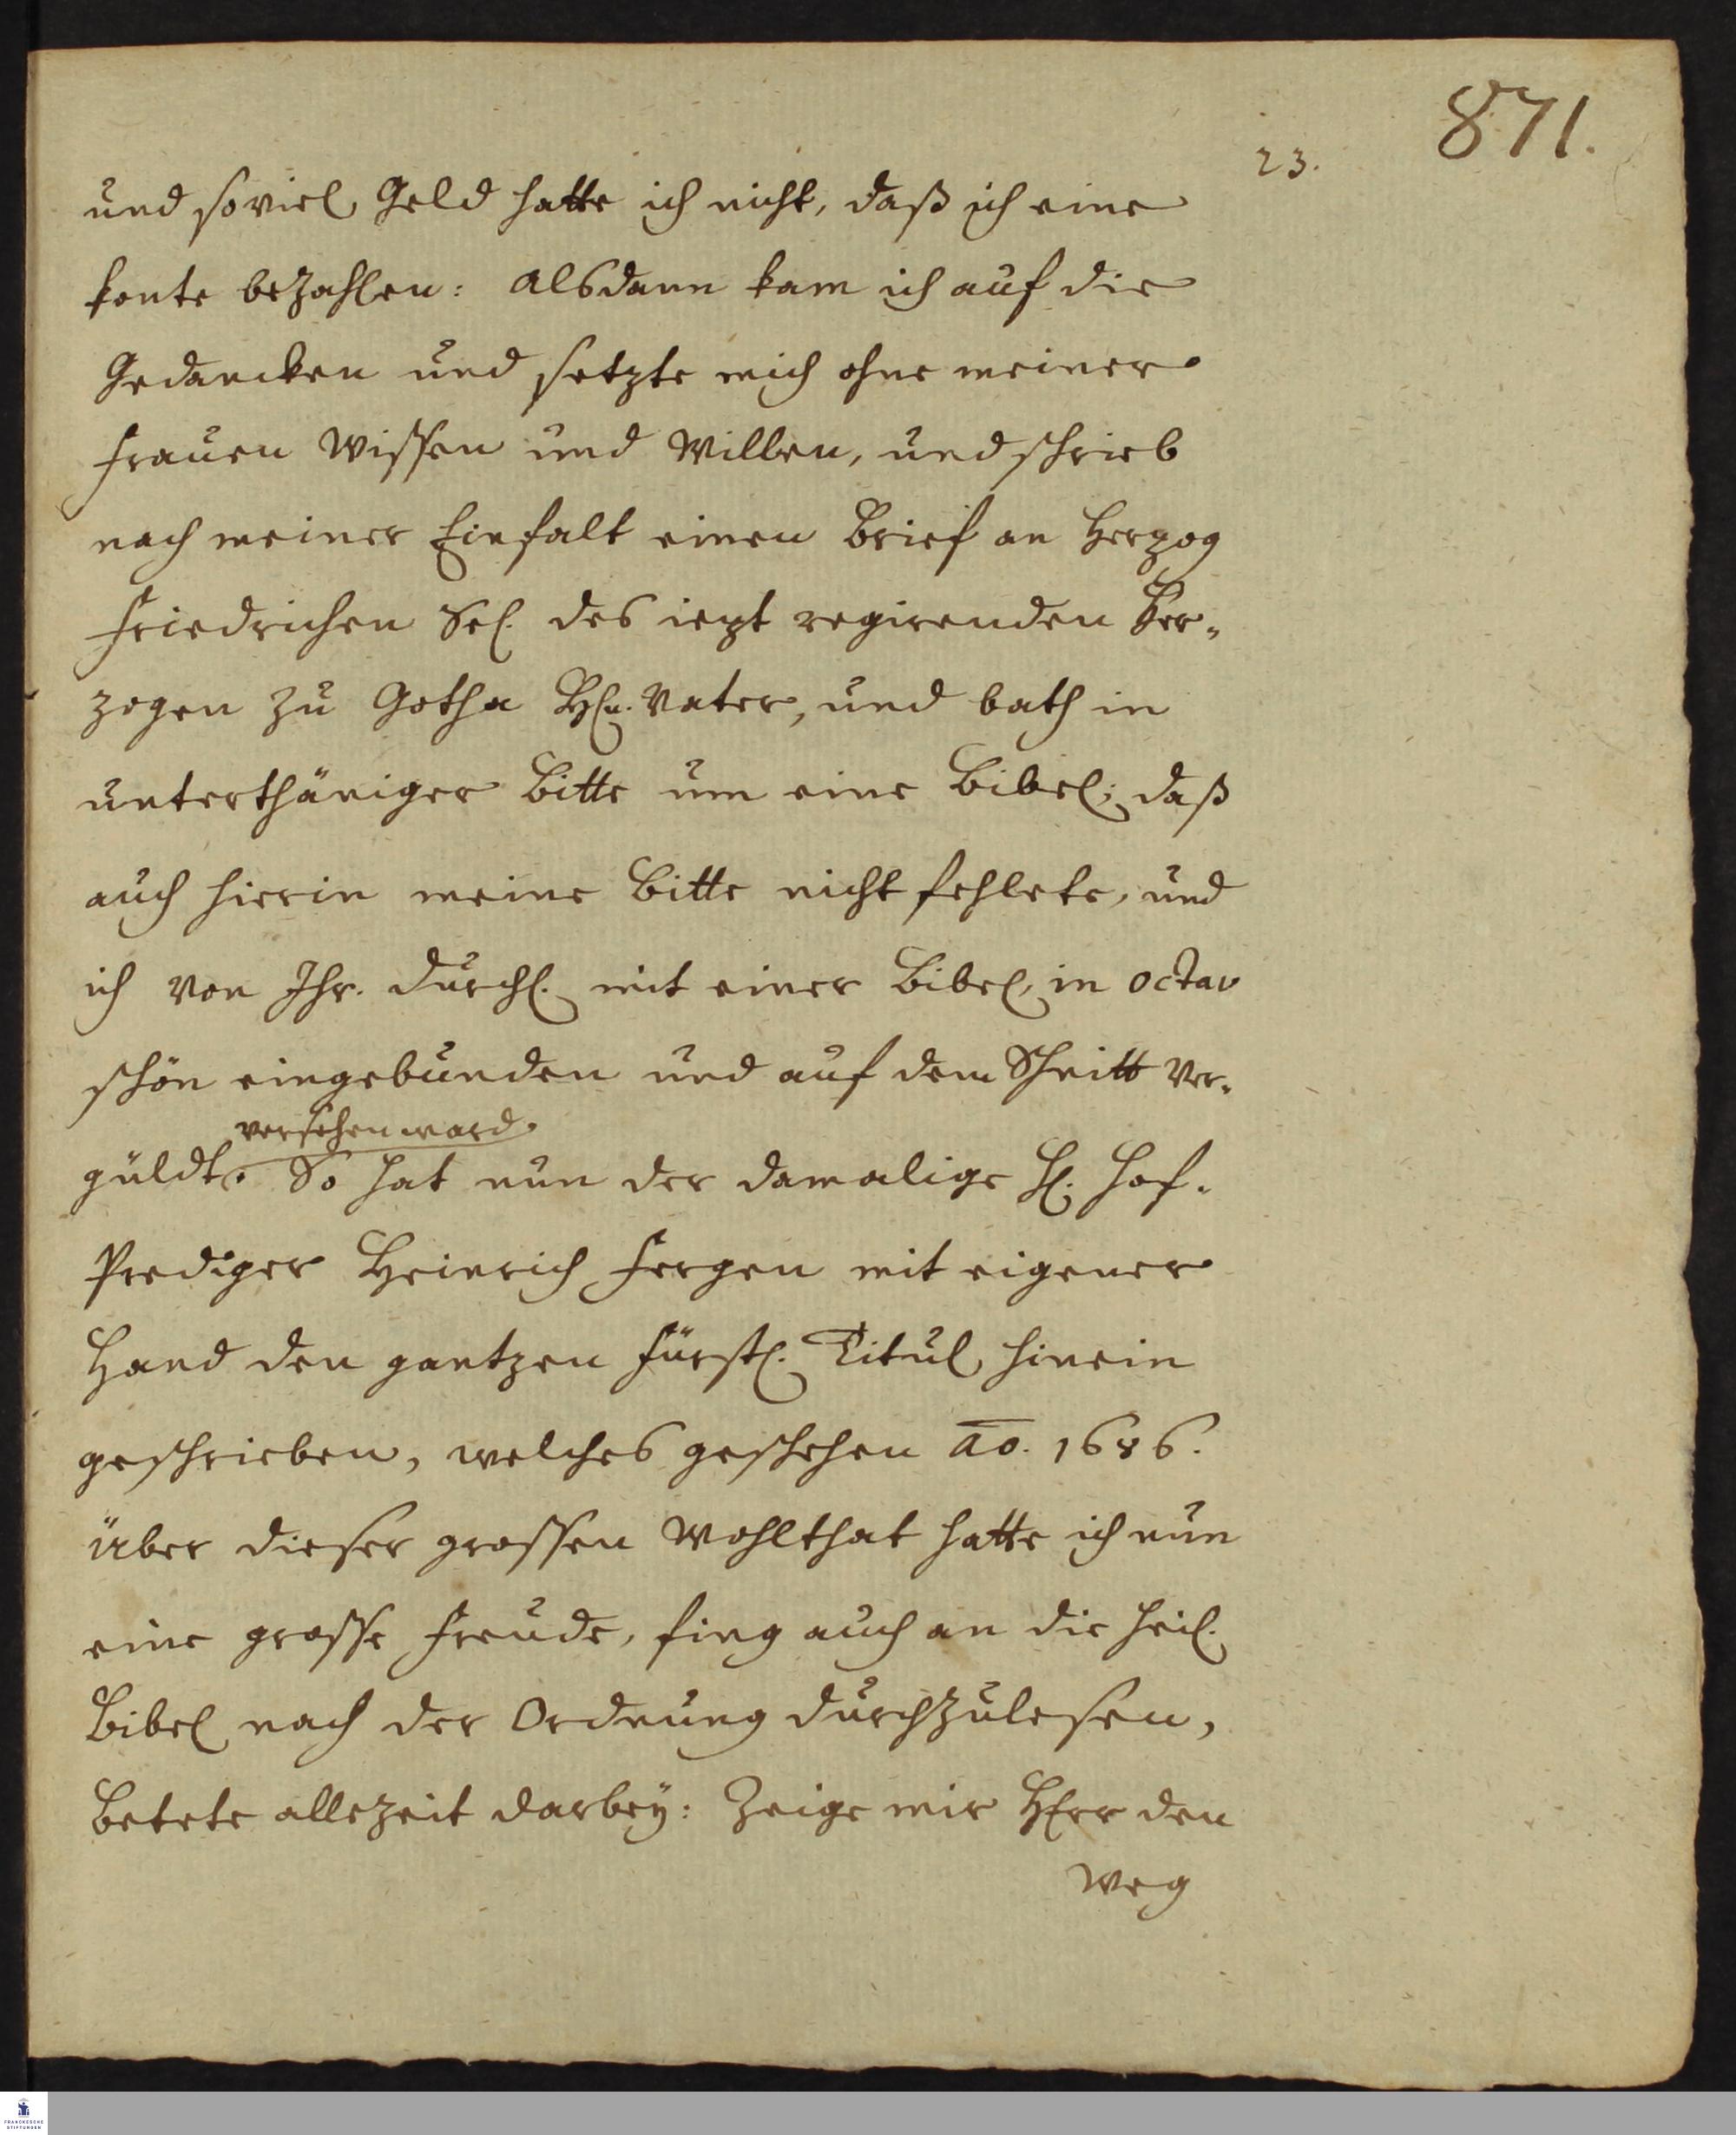 871.
23.
und soviel Geld hatte ich nicht, daß ich eine
konte bezahlen: Alsdann kam ich auf die
Gedancken und setzte mich ohne meiner
Frauen Wissen und Willen, und schrieb
nach meiner Einfalt einen Brief an Herzog
Friedrichen Sel. des iezt regirenden Her-
zogen zu Gotha Hn. Vater, und bath in
unterthäniger Bitte um eine Bibel; daß
auch hierin meine Bitte nicht fehlete, und
ich von Ihr. Durchl. mit einer Bibel, in octav
schön eingebunden und auf dem Schnitt ver-
versehen ward.
güldt. So hat nun der damalige H. Hof-
Prediger Heinrich Fergen mit eigener
Hand den gantzen Fürstl. Titul hinein
geschrieben, welches geschehen ao. 1686.
Über dieser grossen Wohlthat hatte ich nun
eine grosse Freude, fing auch an die heil.
Bibel nach der Ordnung durchzulesen,
betete allezeit darbey: Zeige mir HErr den
Weg
FRANCKESCHE
STIFTUNGEN